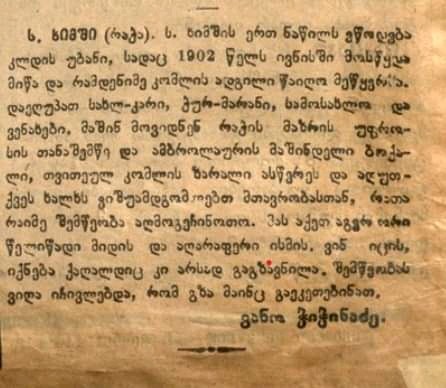 ს. ხიმში (რაჭა). ს. ხიმშის ერთ ნაწილს ეწოდება
კლდის უბანი, სადაც 1902 წელს ივნისში მოსწყდა
მიწა და რამდენიმე კომლის ადგილი წაიღო მეწყერმა.
დაეღუპათ სახლ-კარი, ჭურ-მარანი, სამოსახლო და
ვენახები, მაშინ მოვიდნენ რაჭის მაზრის უფრო-
სის თანაშემწე და ამბროლაურის მაშინდელი ბოქა-
ლი, თვითეულ კომლის ზარალი ასწერეს და აღუთ-
ქვეს ხალხს ვიშუამდგომლებთ მთავრობასთან, რათა
რაიმე შემწეობა აღმოგეჩინოთო. მას აქეთ აგერ ორი
წელიწადი მიდის და აღარაფერი ისმის. ვინ იცის,
იქნება ქაღალდიც კი არსად გაგზავნილა. შემწეობას
ვიღა იჩივლებდა, რომ გზა მაინც გაეკეთებინათ.
ვანო ჭიჭინაძე.